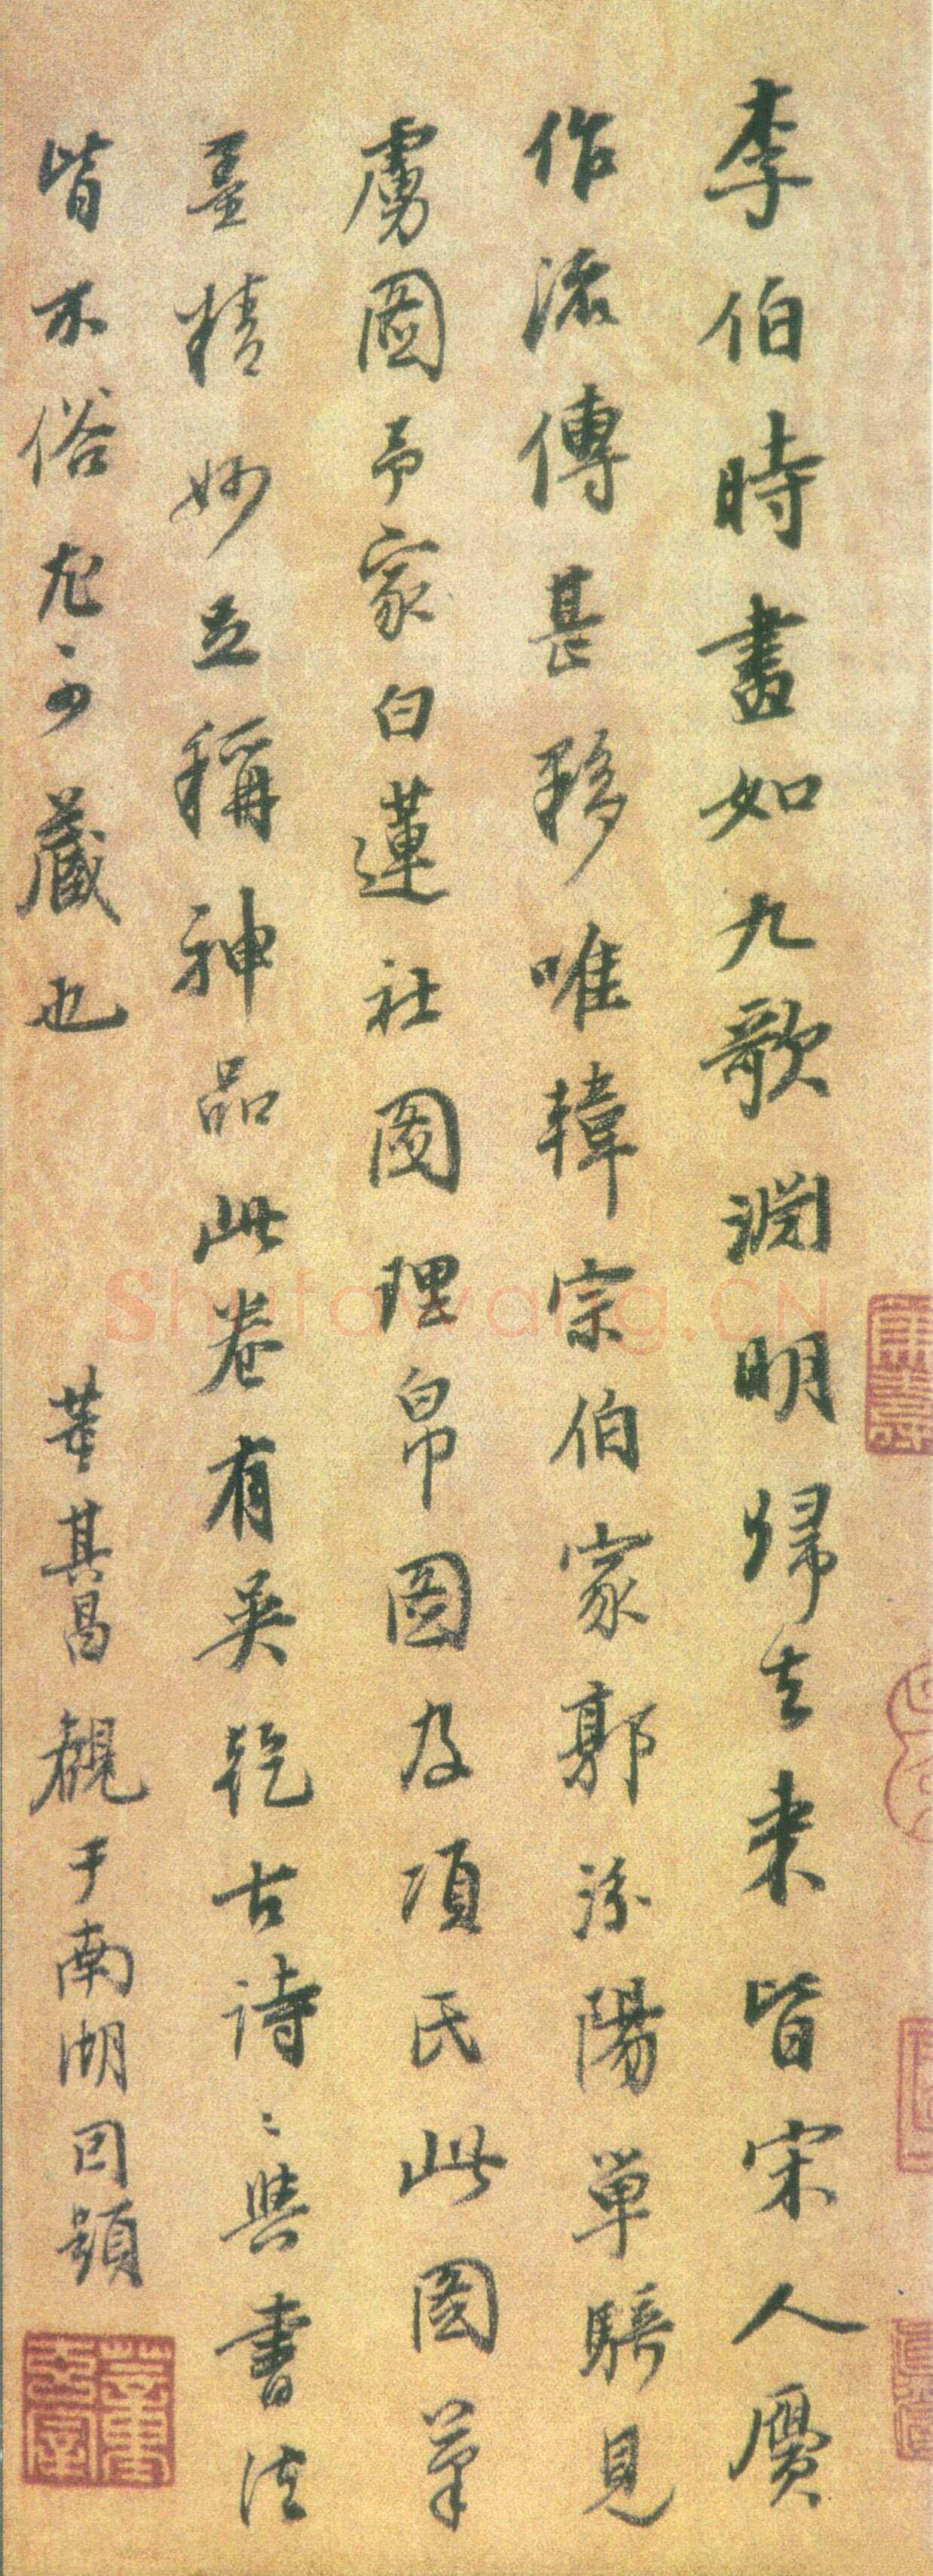 李伯時畫如九歌淵明歸去来皆宋人贋
作流傳甚夥唯韓宗伯家郭汾陽單騎見
虜圖予家白蓮社圖理帛圖及項氏此圖筆
墨精妙立稱神品此卷有吳乾古詩〻與書法
皆不俗尤可藏也 董其昌觀于南湖因題
Shufawang.CN